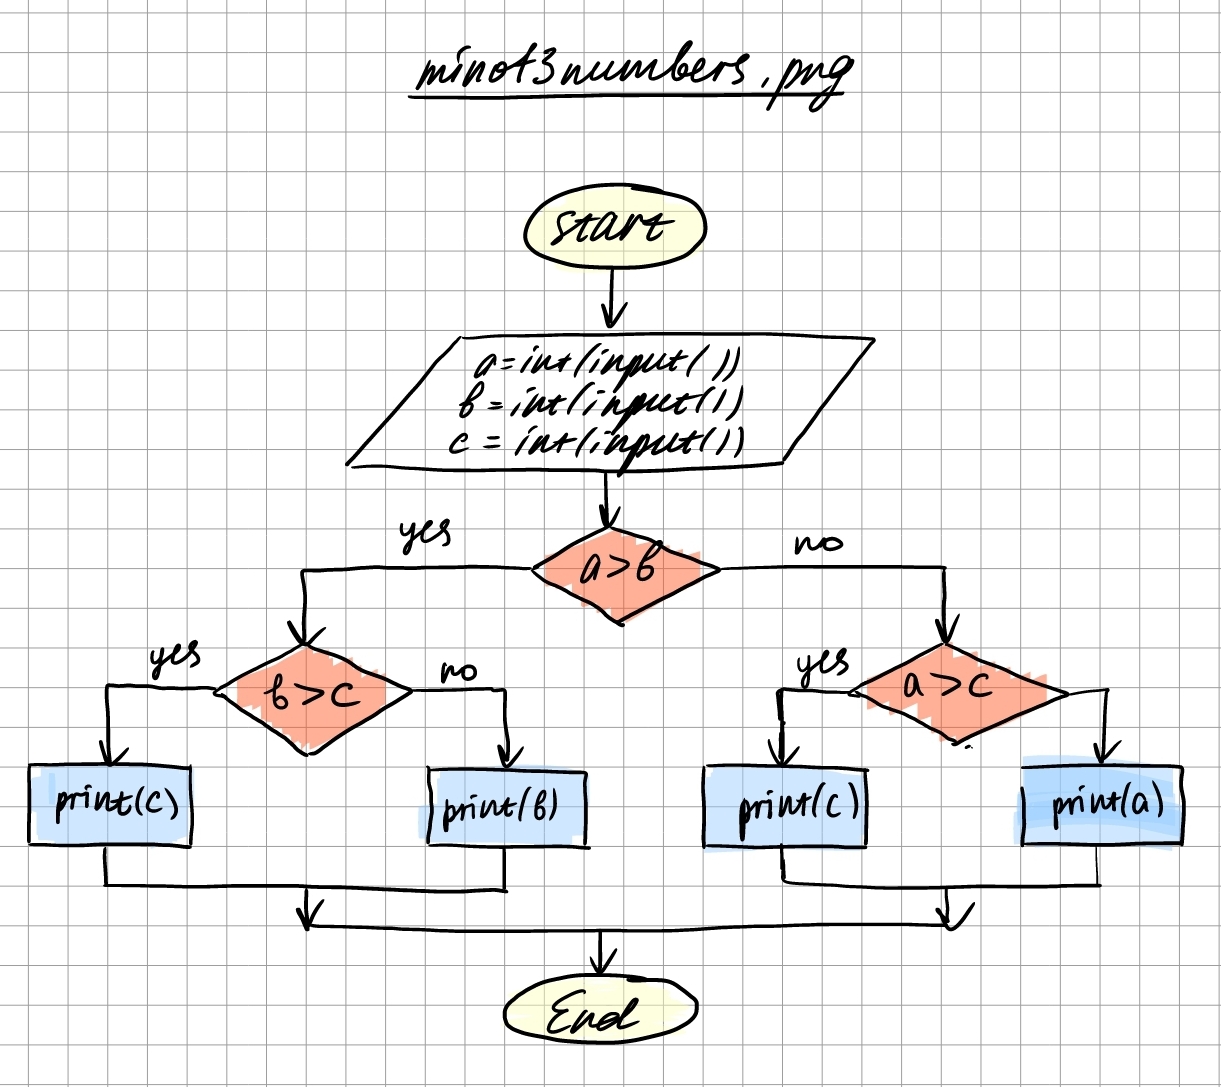 minof3numbers.png
start
a=int(input())
b=int(input())
c=int(input())
yes
a>b
no
yes
b>c
no
yes
a>c
print(c)
print(b)
print(c)
print(a)
End